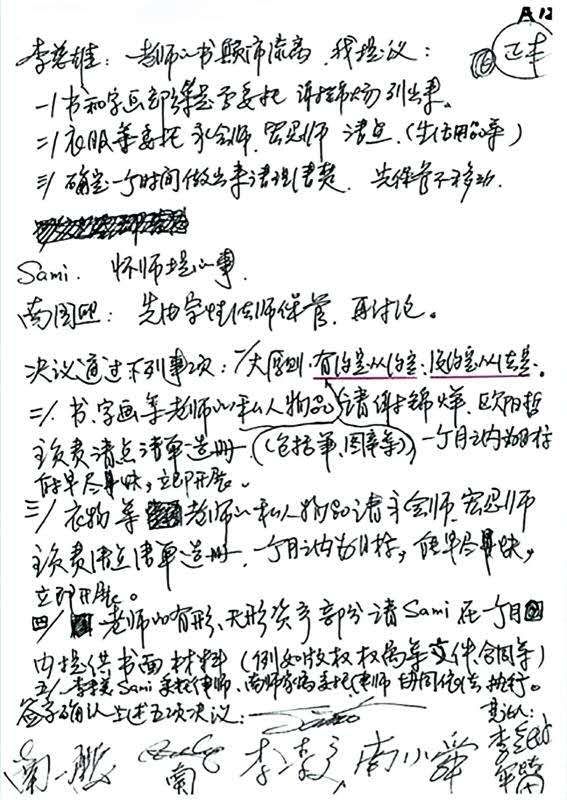 A12
李慈雄：老师的书颠沛流离，我提议：
一/书和字画部分是否委托谢锦炀列出来。
二/衣服等委托永会师、宏忍师清点，(生活用品等)
三/确定一个时间做出来清理清楚，先保管不移动.
Sami. 怀师塔的事.
南国熙：先由宇性法师保管，再讨论。
决议通过下列事项：一/大原则，有约定从约定，没约定从法定.
二/书、字画等老师的私人物品，请谢锦炀、欧阳哲
负责清点清单造册(包括章、图章等)，一个月之内为目标
能早尽早快，立即开展。
三/衣物等老师的私人物品请永会师、宏忍师
负责清点清单造册，一个月之内为目标，能早尽早快，
立即开展。
四/老师的有形、无形资产部分请Sami在一个月
内提供书面材料(例如版权权属等文件、合同等)
五/李慈雄 Sami委托律师、南师家属委托律师协同依法执行。
签字确认上述五项决议：
见证人：
南一鹏 南 李 南小舜